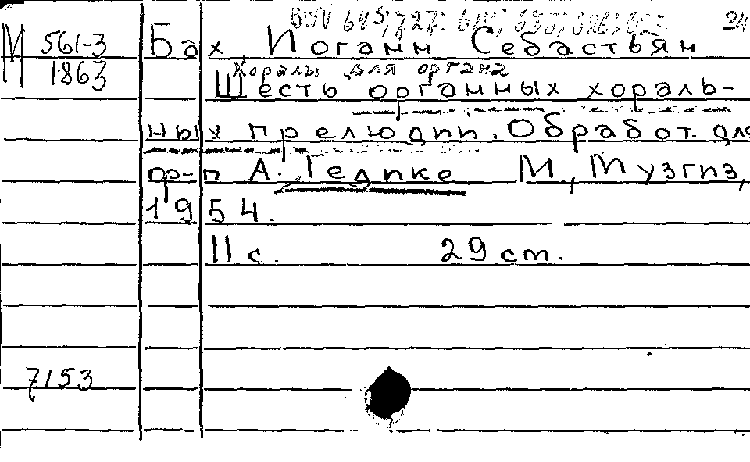 24
М 561-3 Бах, Иоганн Себастьян
1863 Хоралы для органа
Шесть органных хораль-
ных прелюдии. Обработ. для
ф-п А. Гедике М, Музгиз,
1954.
11 с. 29 ст.
7153